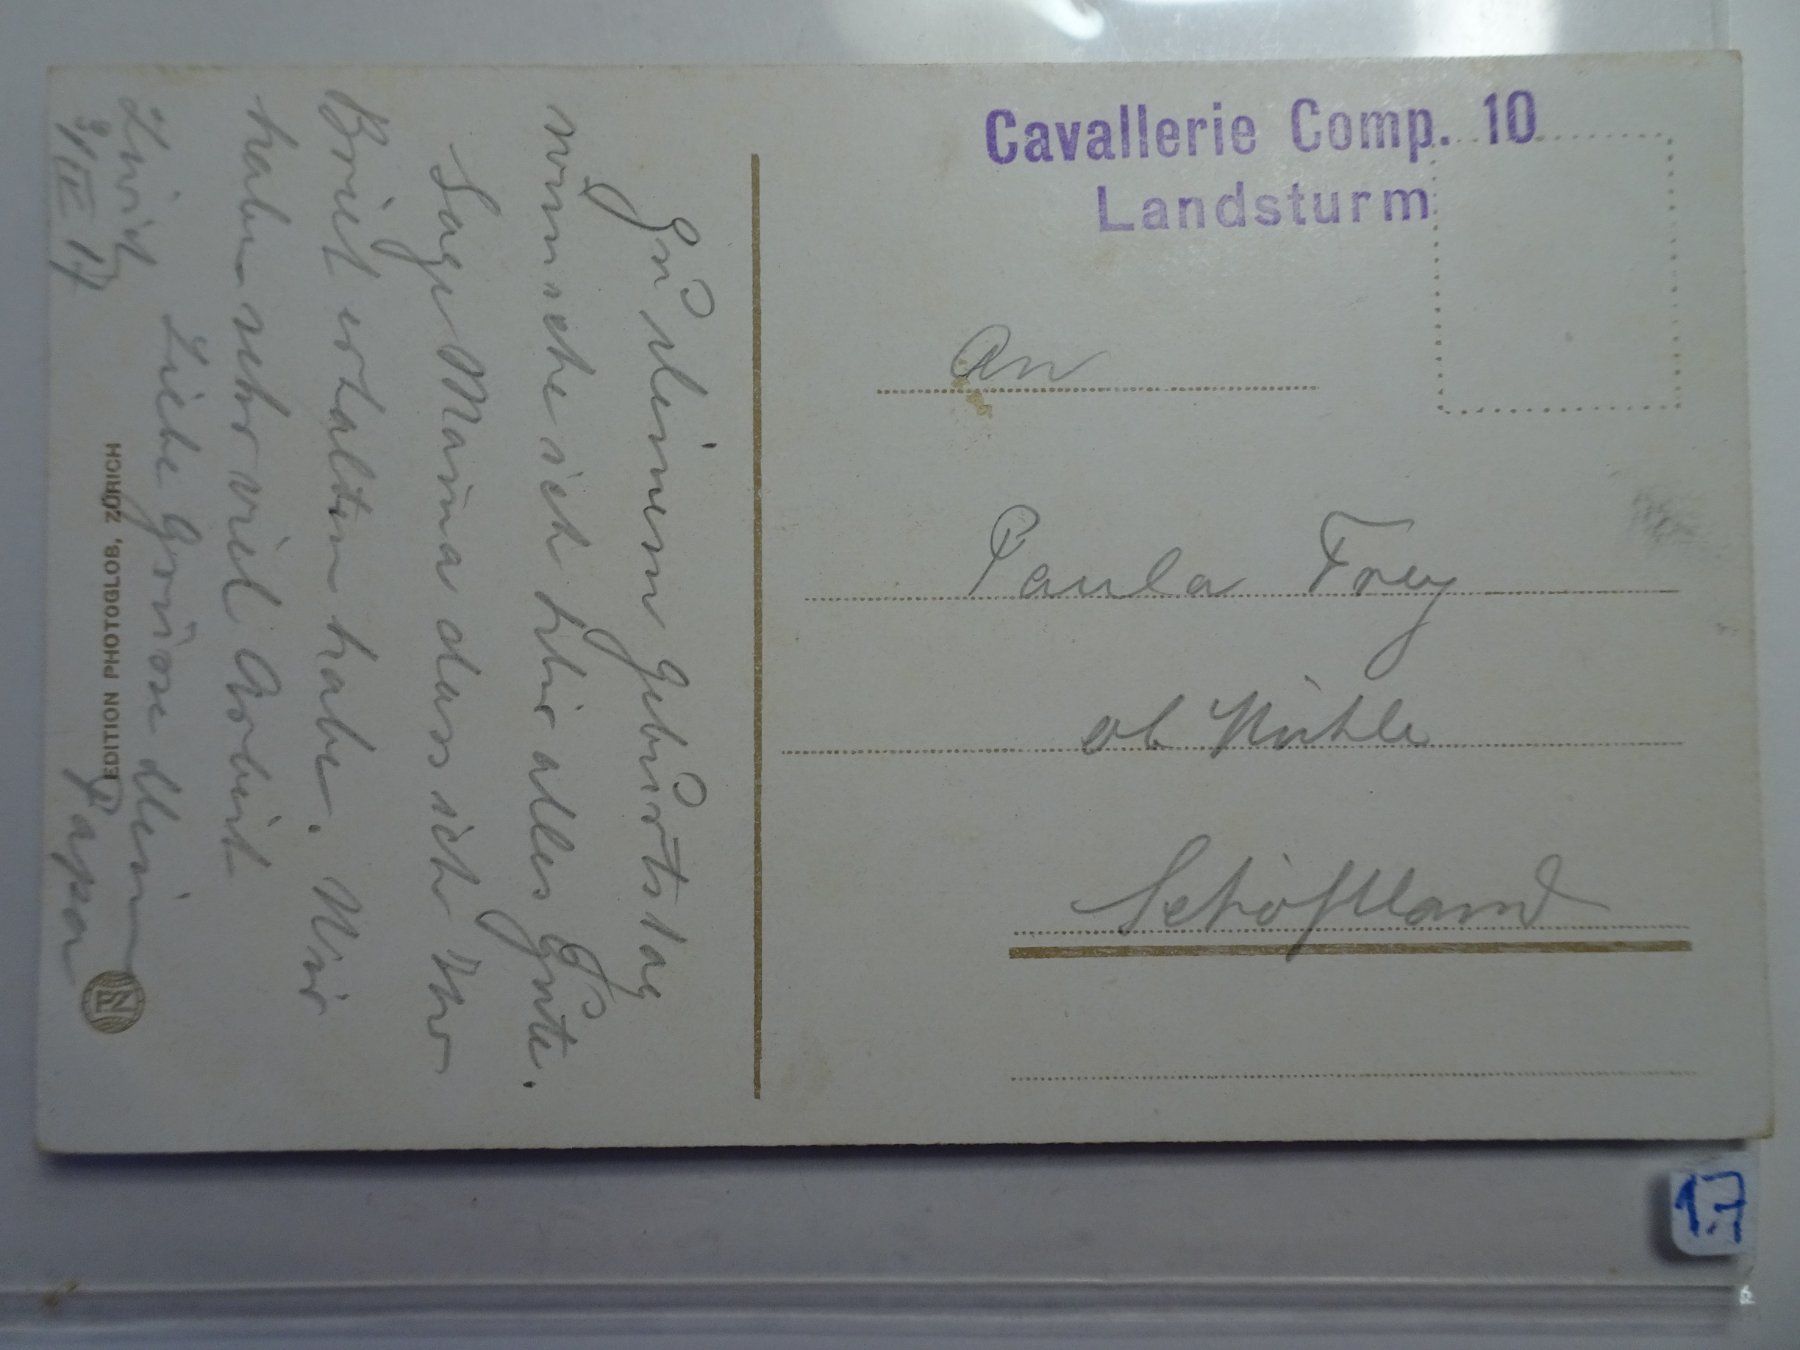 Cavallerie Comp. 10
Landsturm
An
Paula Frey
ob Mühle
Schöftland
Zürich
9/IX 17
Zu deinem Geburtstag
wünsche ich dir alles Gute.
Sage Mama dass ich ihr
Brief erhalten habe. Wir
haben sehr viel Arbeit
Liebe Grüsse dein
Papa
EDITION PHOTOGLOB, ZÜRICH
1.7